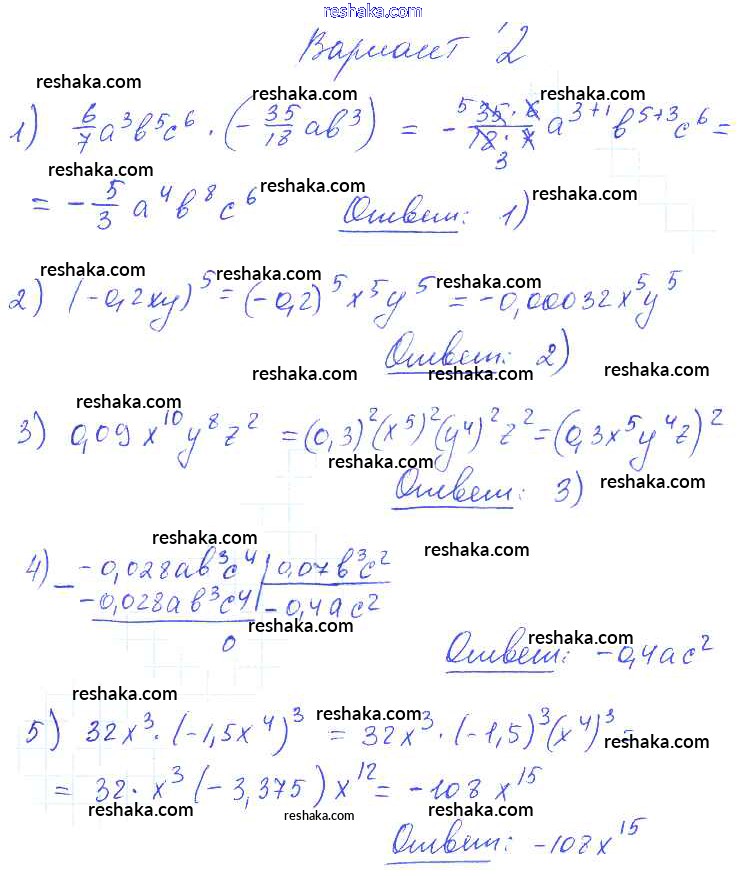 www.reshaka.com
Вариант 2
reshaka.com reshaka.com reshaka.com
1) 6/7 a³b⁵c⁶ · (-35/18 ab³) = - (5 35 · 6)/(18 · 7 3) a³⁺¹ b⁵⁺³ c⁶ =
reshaka.com reshaka.com
= - 5/3 a⁴ b⁸ c⁶ Ответ: 1)
reshaka.com reshaka.com reshaka.com
2) (-0,2xy)⁵ = (-0,2)⁵ x⁵ y⁵ = -0,00032x⁵y⁵
Ответ: 2)
reshaka.com reshaka.com reshaka.com
reshaka.com
3) 0,09 x¹⁰y⁸z² = (0,3)²(x⁵)²(y⁴)² z² = (0,3x⁵y⁴z)²
reshaka.com
Ответ: 3)
reshaka.com
reshaka.com reshaka.com
4) - -0,028ab³c⁴ | 0,07b³c²
-0,028ab³c⁴ | -0,4ac²
reshaka.com
0
reshaka.com
Ответ: -0,4ac²
reshaka.com reshaka.com
5) 32x³ · (-1,5x⁴)³ = 32x³ · (-1,5)³(x⁴)³ =
reshaka.com
= 32 · x³ (-3,375) x¹² = -108 x¹⁵
reshaka.com reshaka.com reshaka.com
Ответ: -108x¹⁵